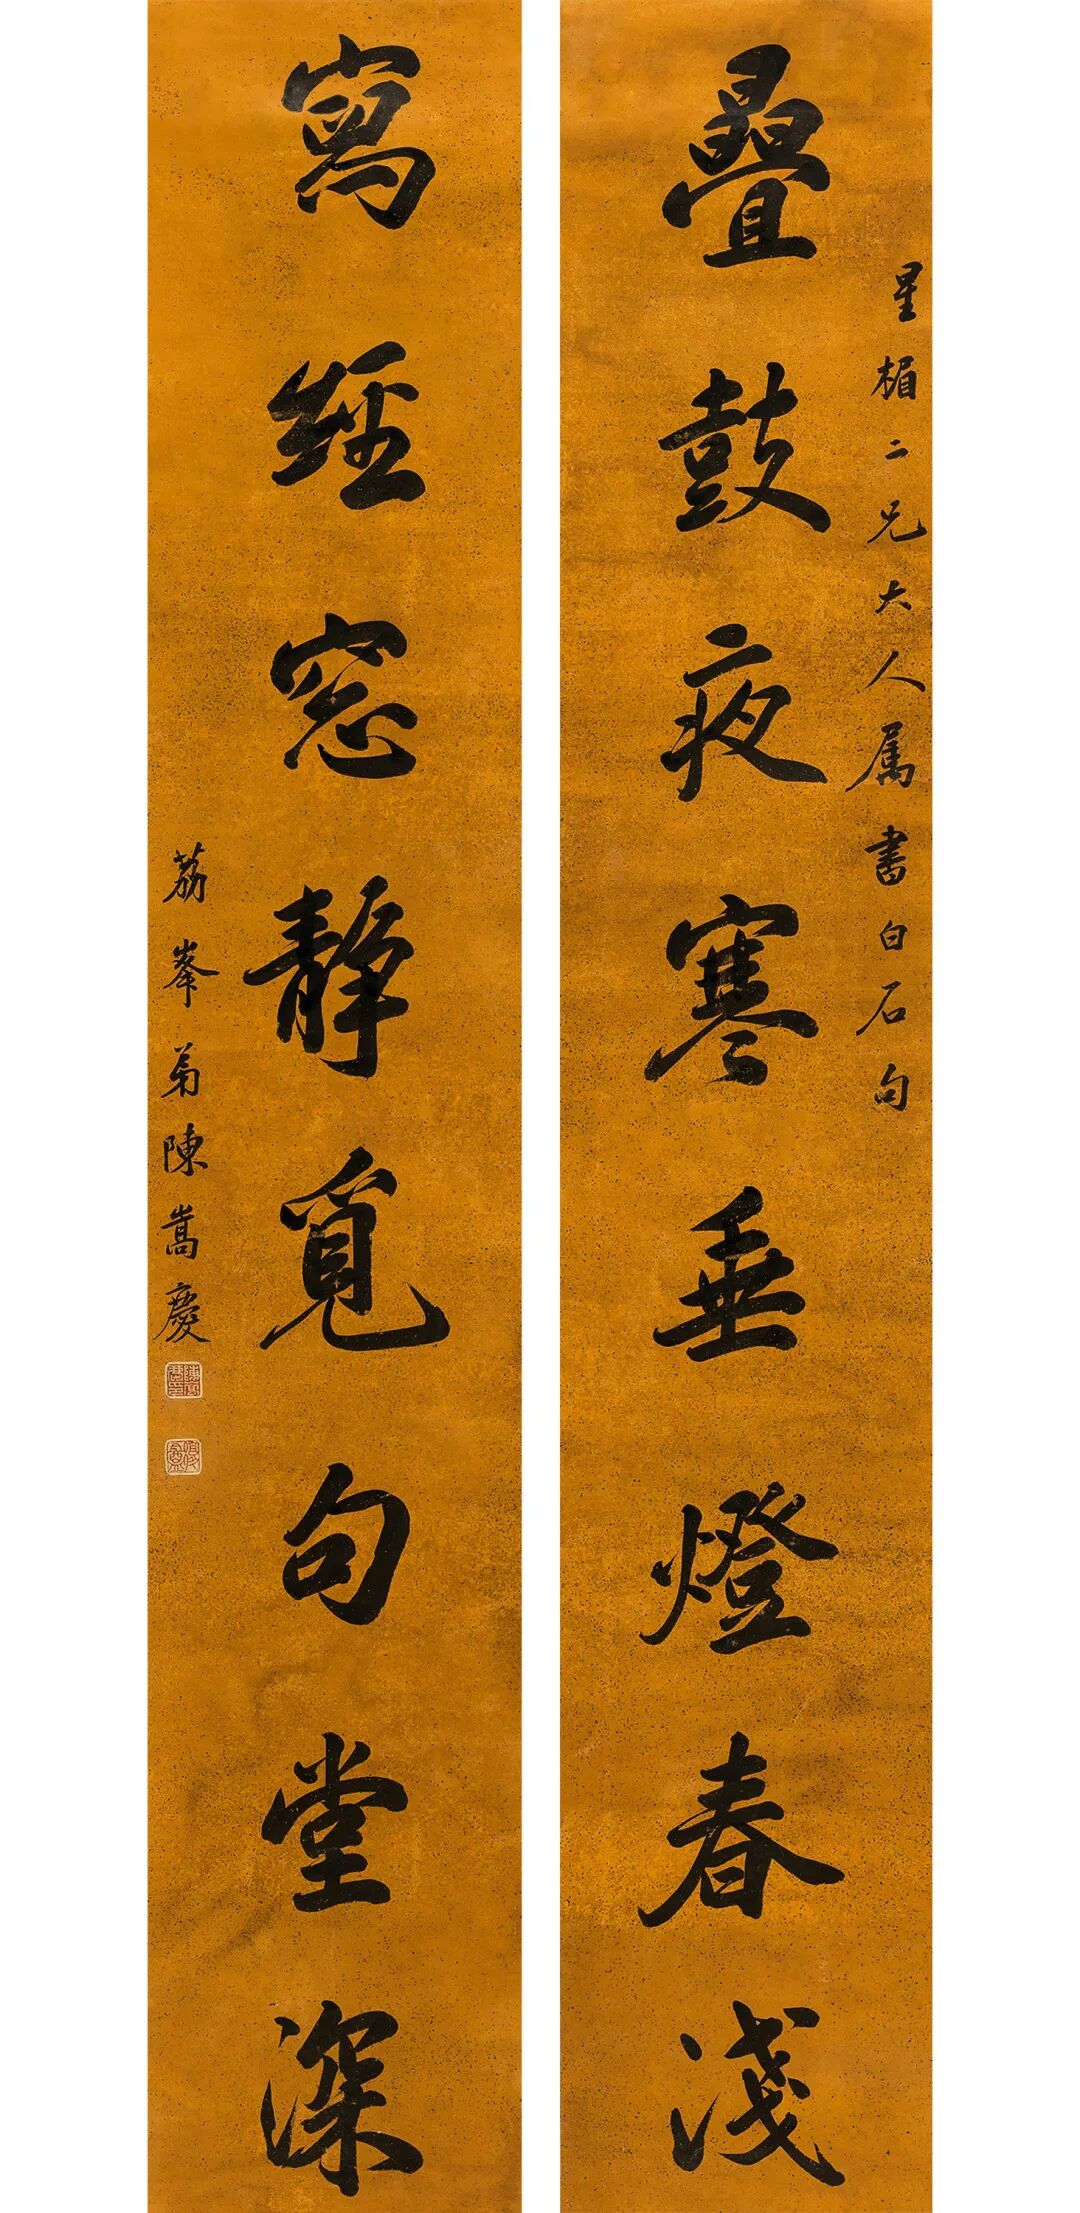 疊鼓夜寒垂燈春淺
星楣二兄大人属書白石句
寫經窓靜覓句堂深
荔峯弟陳嵩慶